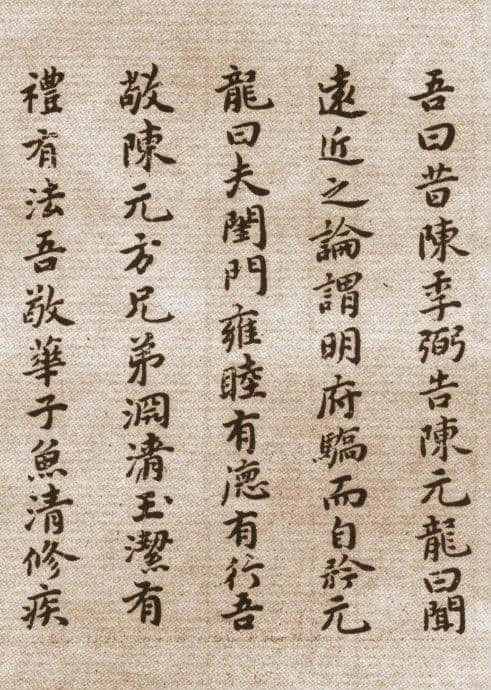 吾曰昔陳季弼告陳元龍曰聞
遠近之論謂明府驕而自矜元
龍曰夫閨門雍睦有德有行吾
敬陳元方兄弟淵清玉潔有
禮有法吾敬華子魚清修疾